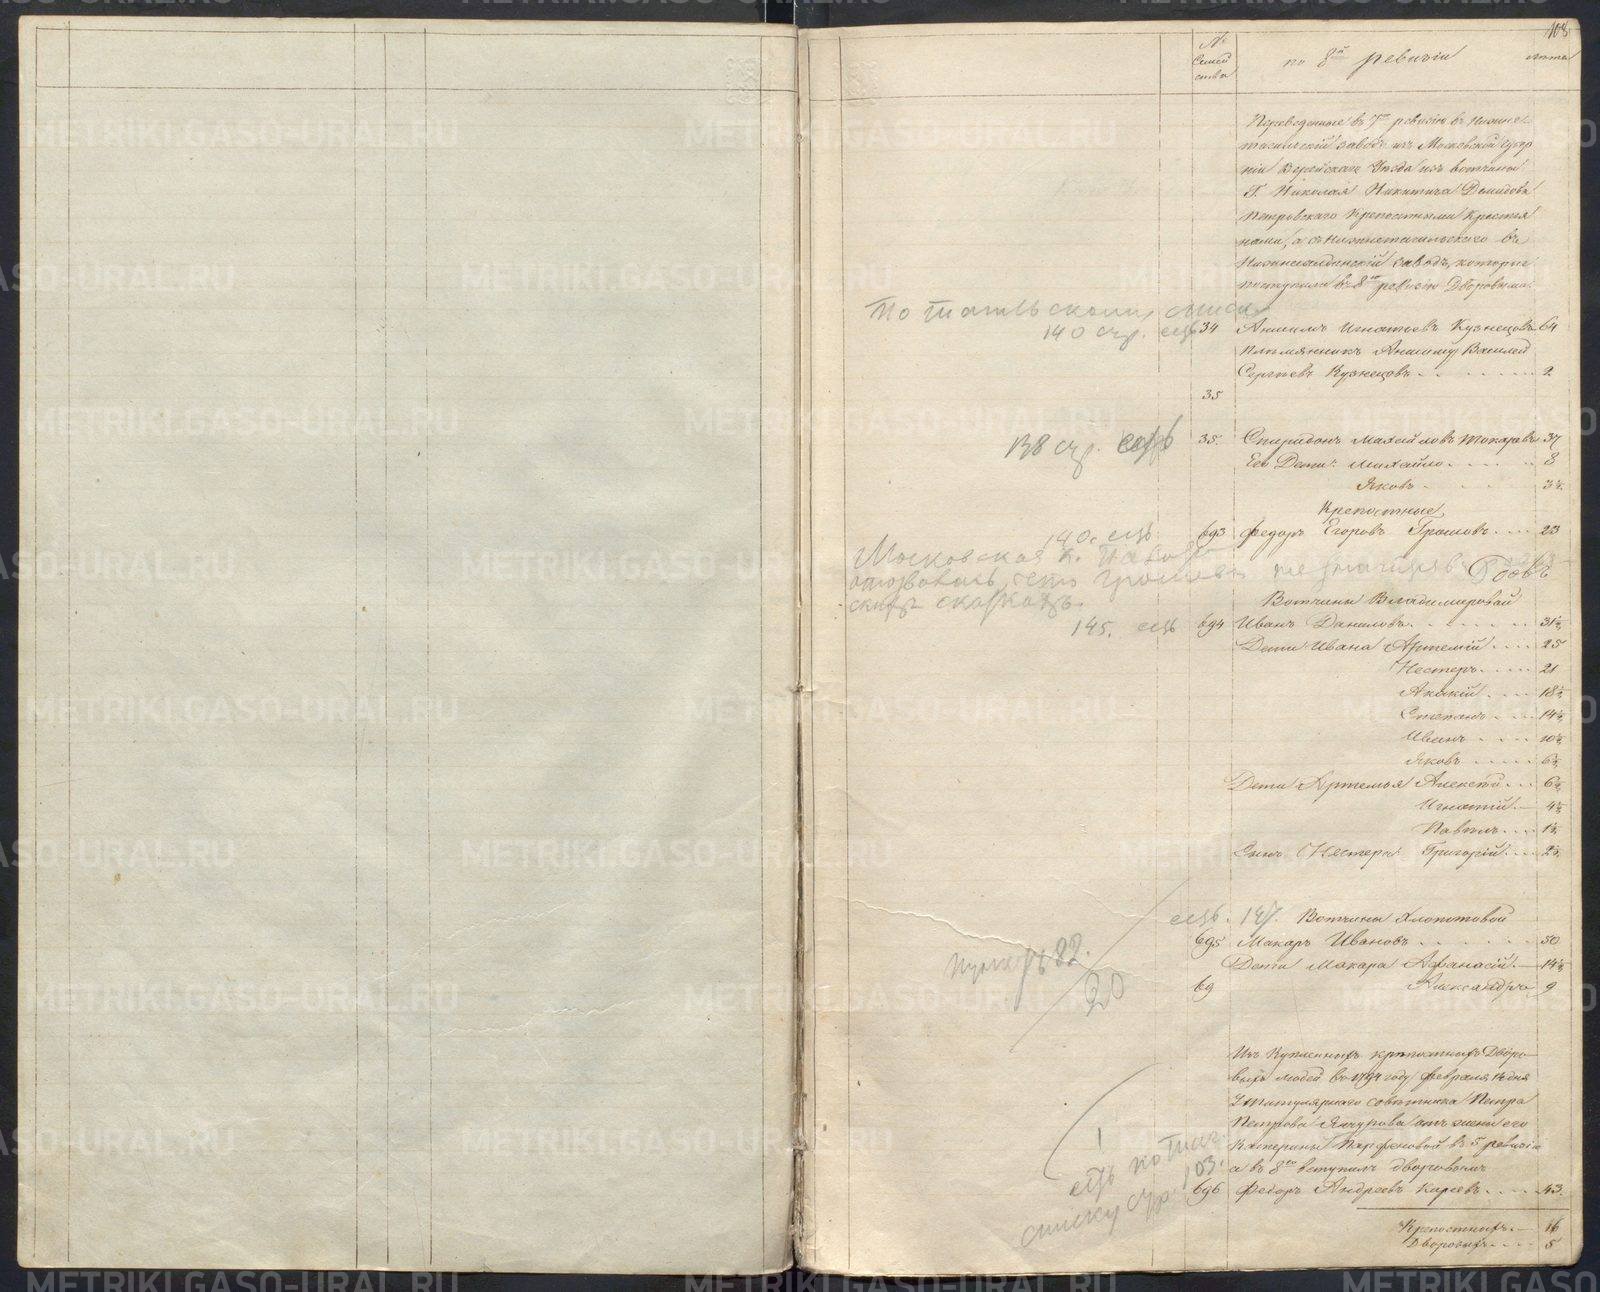 108
№ Семей ства
по 8й ревизіи
лѣта
Переведенные въ 7ю ревизію въ Нижне-
тагильскій заводъ изъ Московской губер
ніи Верейскаго Уѣзда изъ вотчины
Г. Николая Никитича Демидова
Петровскаго Крепостными Крестья
нами, а съ Нижнетагильскаго въ
Нижнесалдинскій заводъ, которые
поступили въ 8ю ревизію Дворовыми.
По тагильскому списку
140 стр. есть
34 Анисимъ Игнатьевъ Кузнецовъ 64
Племянникъ Анисиму Василей
Сергѣевъ Кузнецовъ 2
35
138 стр. есть
35. Спиридонъ Михайловъ Токаревъ 37
Его Дети: Михайло 8
Яковъ 3½
Крепостные
140. есть
693 Федоръ Егоровъ Громовъ 23
Московская
Громовъ не значится
145. есть
Вотчины Владимировой
694 Иванъ Даниловъ 31½
Дети Ивана Артемій 25
Нестеръ 21
Акакій 18½
Степанъ 14½
Иванъ 10½
Яковъ 6½
Дети Артемья Алексѣй 6½
Игнатій 4½
Павелъ 1½
Сынъ Нестера Григорій 2½
есть. 147. Вотчины Хлопотовой
695 Макаръ Ивановъ 50
Дети Макара Афанасій 14½
69 Александръ 9
82.
20
Изъ Купленныхъ крѣпостныхъ Дворо-
выхъ людей въ 1794 году февраля 14 дня
У Титулярнаго совѣтника Петра
Петрова Янчурова отъ жены его
Катерины Парфеновой въ 5 ревизіи
а въ 8ю вступилъ дворовымъ
1
есть по таг.
списку стр. 103.
696 Федоръ Андреевъ Каревъ 43
Крепостныхъ 16
Дворовыхъ 5
METRIKI.GASO-URAL.RU